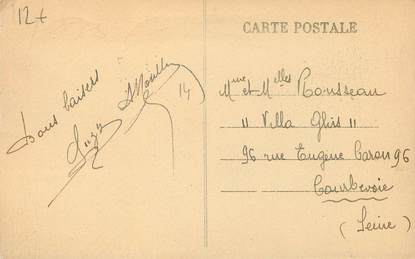 12+
CARTE POSTALE
Bons baisers
Suzy
14
Mme et Melles Rousseau
" Villa Glris "
96 rue Eugène Caron 96
Courbevoie
(Seine)